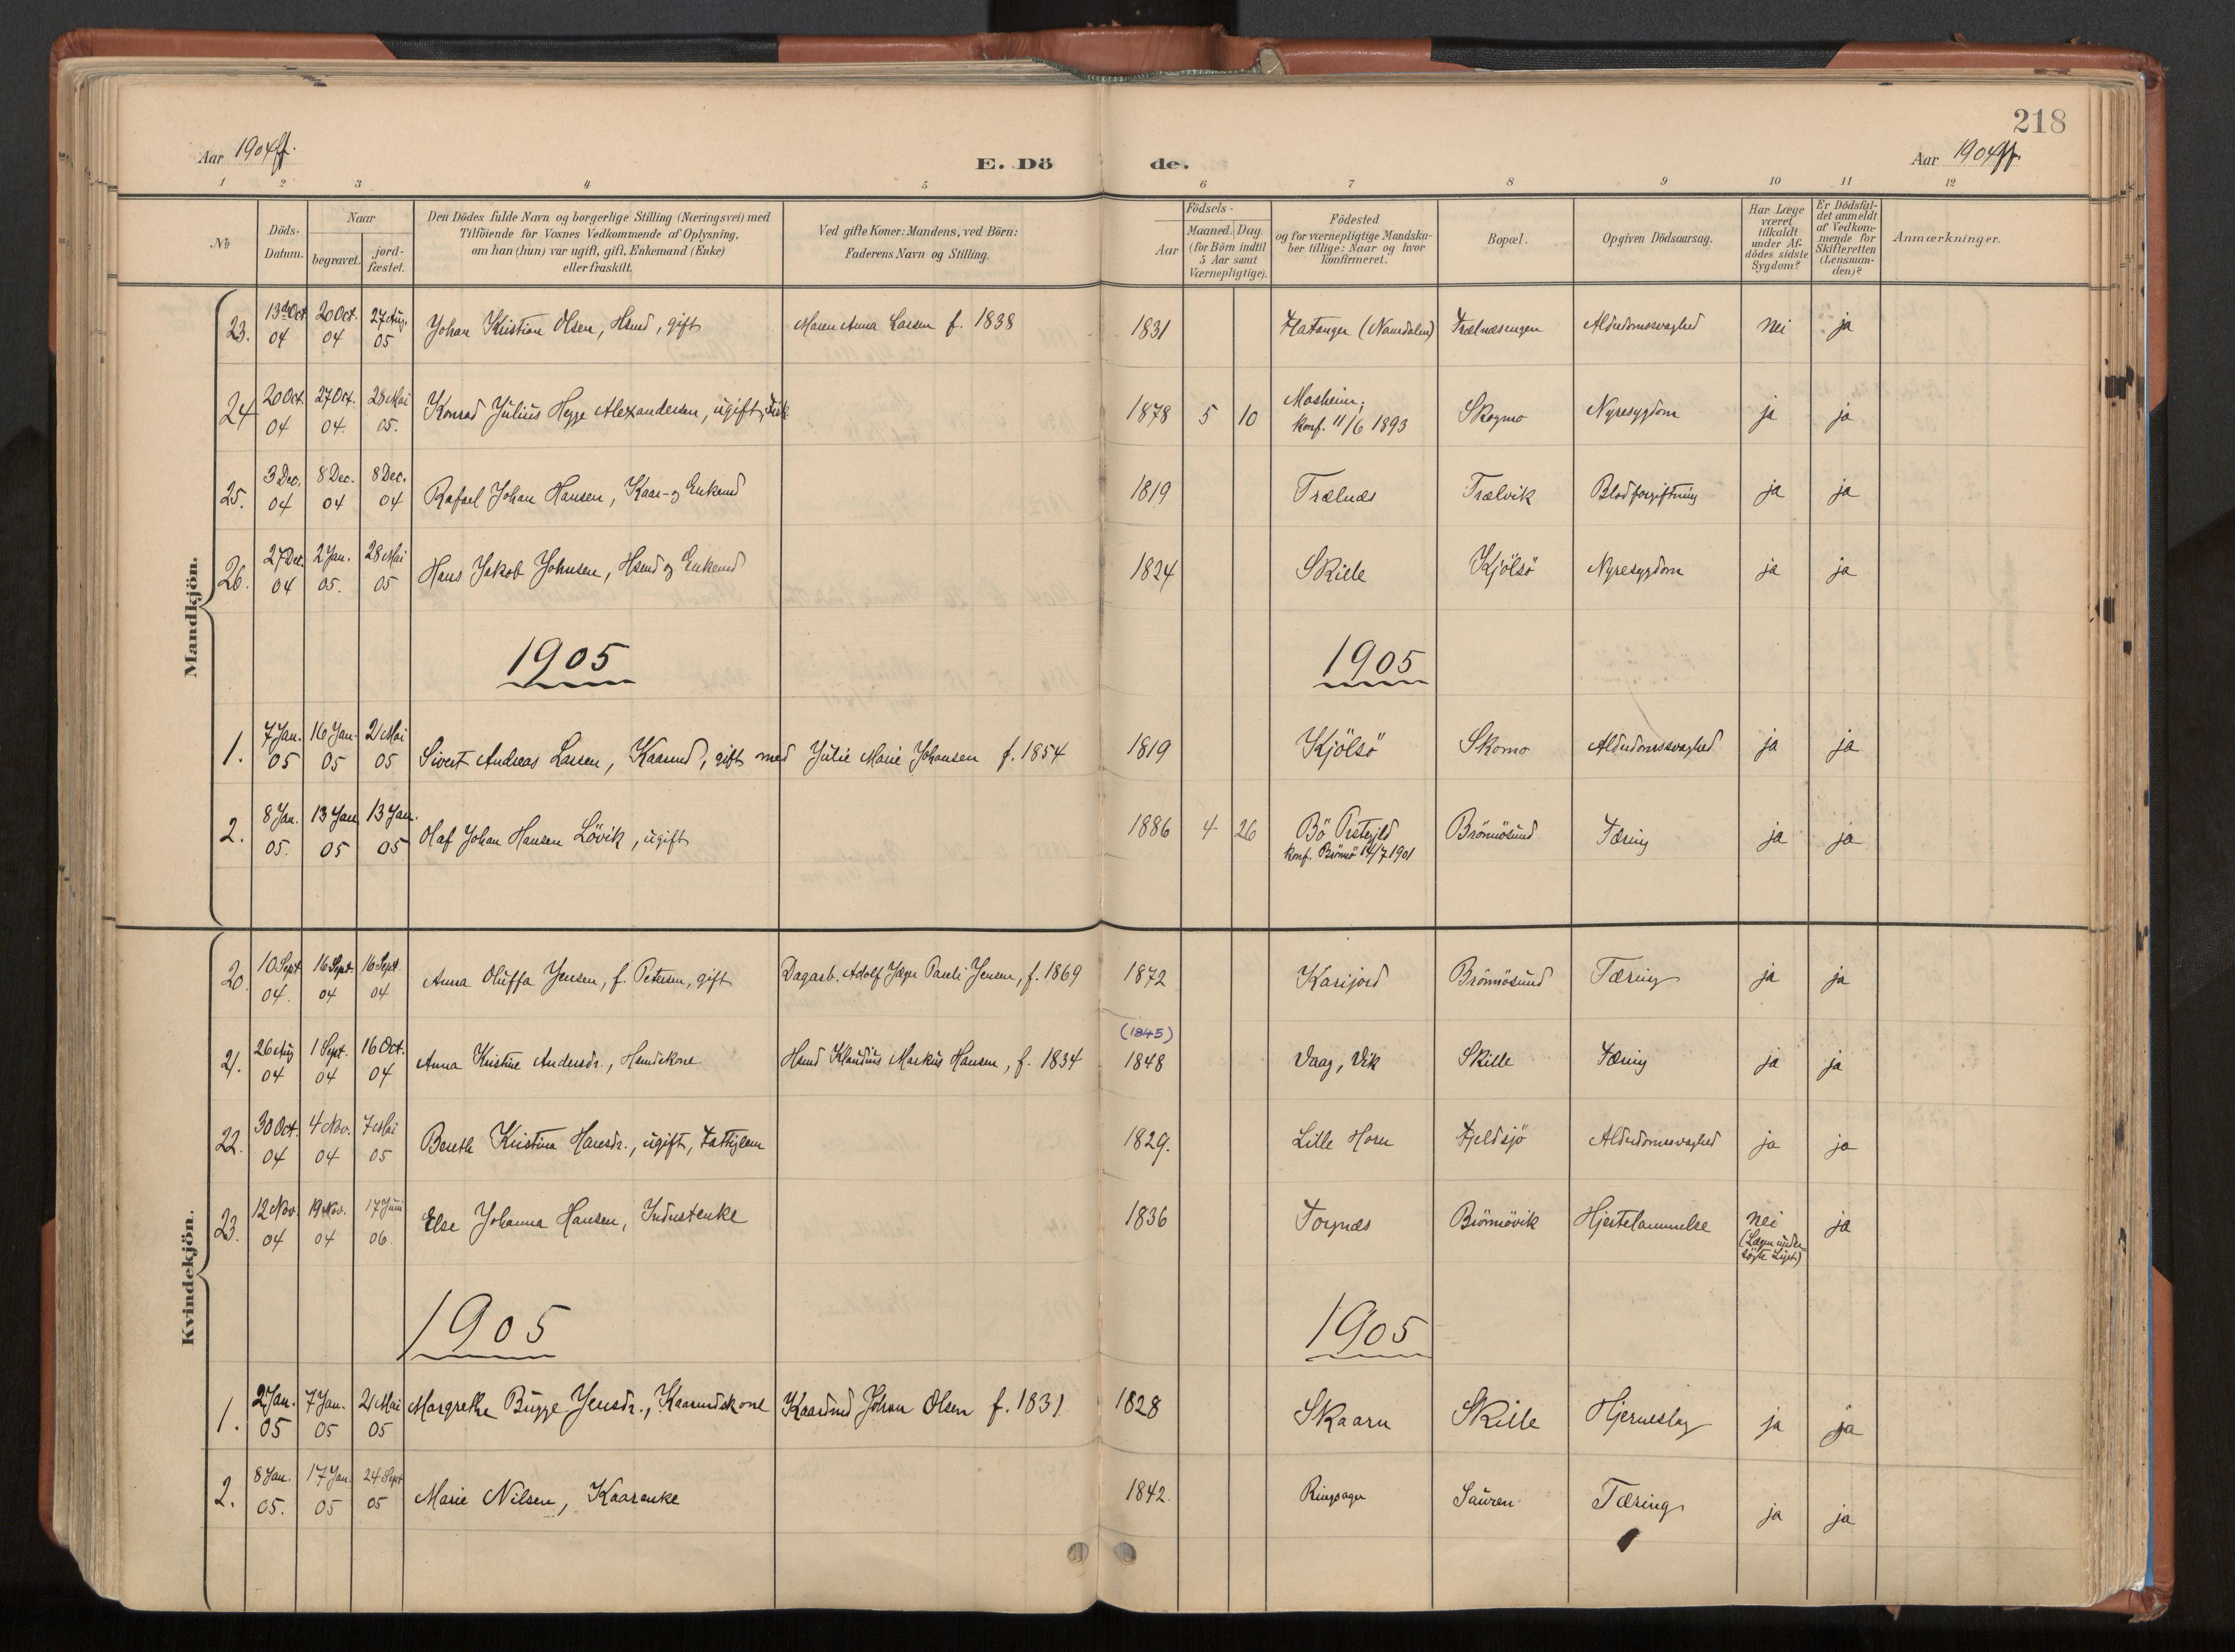 218
Aar 1904ff.
E. Dö
de.
Aar 1904ff.
1 2 3 4 5 6 7 8 9 10 11 12
№
Döds-Datum.
Naar
begravet.
jord-fæstet.
Den Dödes fulde Navn og borgerlige Stilling (Næringsvei) med
Tilföiende for Voxnes Vedkommende af Oplysning,
om han (hun) var ugift, gift, Enkemand (Enke)
eller fraskilt.
Ved gifte Koner: Mandens, ved Börn:
Faderens Navn og Stilling.
Födsels-
Aar
Maaned. Dag.
(for Börn indtil
5 Aar samt
Værnepligtige).
Födested
og for værnepligtige Mandska-
ber tillige: Naar og hvor
konfirmeret.
Bopæl.
Opgiven Dödsaarsag.
Har Læge
været
tilkaldt
under Af-
dödes sidste
Sygdom?
Er Dödsfal-
det anmeldt
af Vedkom-
mende for
Skifteretten
(Lensman-
den)?
Anmærkninger.
Mandkjön.
23. 13de Oct 04 20 Oct. 04 27 Aug. 05 Johan Kristian Olsen, Hsmd, gift Maren Anna Larsen f. 1838 1831 Flatanger (Namdalen) Trælnæsengen Alderdomssvaghed nei ja
24 20 Oct. 04 27 Oct. 04. 28 Mai 05. Konrad Julius Hegge Alexandersen, ugift, Fisk 1878 5 10 Mosheim, Skogmo Nyresygdom ja ja
konf. 11/6 1893
25. 3 Dec. 04 8 Dec. 04 8 Dec. 04 Rafael Johan Hansen, Kaar- og Enkemd 1819 Trælnæs Trælvik Blodforgiftning ja ja
26. 27 Dec. 04 2 Jan. 05. 28 Mai 05 Hans Jakob Johnsen, Hsmd og Enkemd 1824 Skille Kjölsö Nyresygdom ja ja
1905 1905
1. 7 Jan. 05 16 Jan. 05 21 Mai 05 Sivert Andreas Larsen, Kaarmd, gift med Julie Marie Johansen f. 1854 1819 Kjölsö Skomo Alderdomssvaghed ja ja
2. 8 Jan. 05. 13 Jan 05 13 Jan. 05 Olaf Johan Hansen Lövik, ugift 1886 4 26 Bö Prstgjld Brönnösund Tæring ja ja
konf. Brönnö 14/7 1901
Kvindekjön.
20. 10 Sept 04. 16 Sept. 04 16 Sept. 04 Anna Oluffa Jensen, f. Petersen, gift Dagarb. Adolf Jæger Pareli Jensen, f. 1869 1872 Karijord Brönnösund Tæring ja ja
(1845)
21. 26 Aug 04 1 Sept. 04 16 Oct. 04 Anna Kristine Andersdr., Hsmdskone Hsmd Klaudius Markus Hansen, f. 1834 1848 Vaag, Vik Skille Tæring ja ja
22. 30 Oct. 04 4 Nov. 04 7 Mai 05 Bereth Kristina Hansdr., ugift, Fattiglem 1829. Lille Horn Fjeldsjö Alderdomssvaghed ja ja
23. 12 Nov. 04 19 Nov. 04 17 Juni 06. Else Johanna Hansen, Inderstenke 1836 Torgnæs Brönnövik Hjertelammelse nei ja
(Lægen under-
søgte Liget)
1905 1905
1. 2 Jan. 05 7 Jan. 05 21 Mai 05 Margrethe Bugge Jensdr., Kaarmdskone Kaarmd Johan Olsen f. 1831 1828 Skaarn Skille Hjerneslag ja ja
2. 8 Jan. 05. 17 Jan. 05 24 Sept 05 Marie Nilsen, Kaarenke 1842. Ringsager Sauren Tæring ja ja